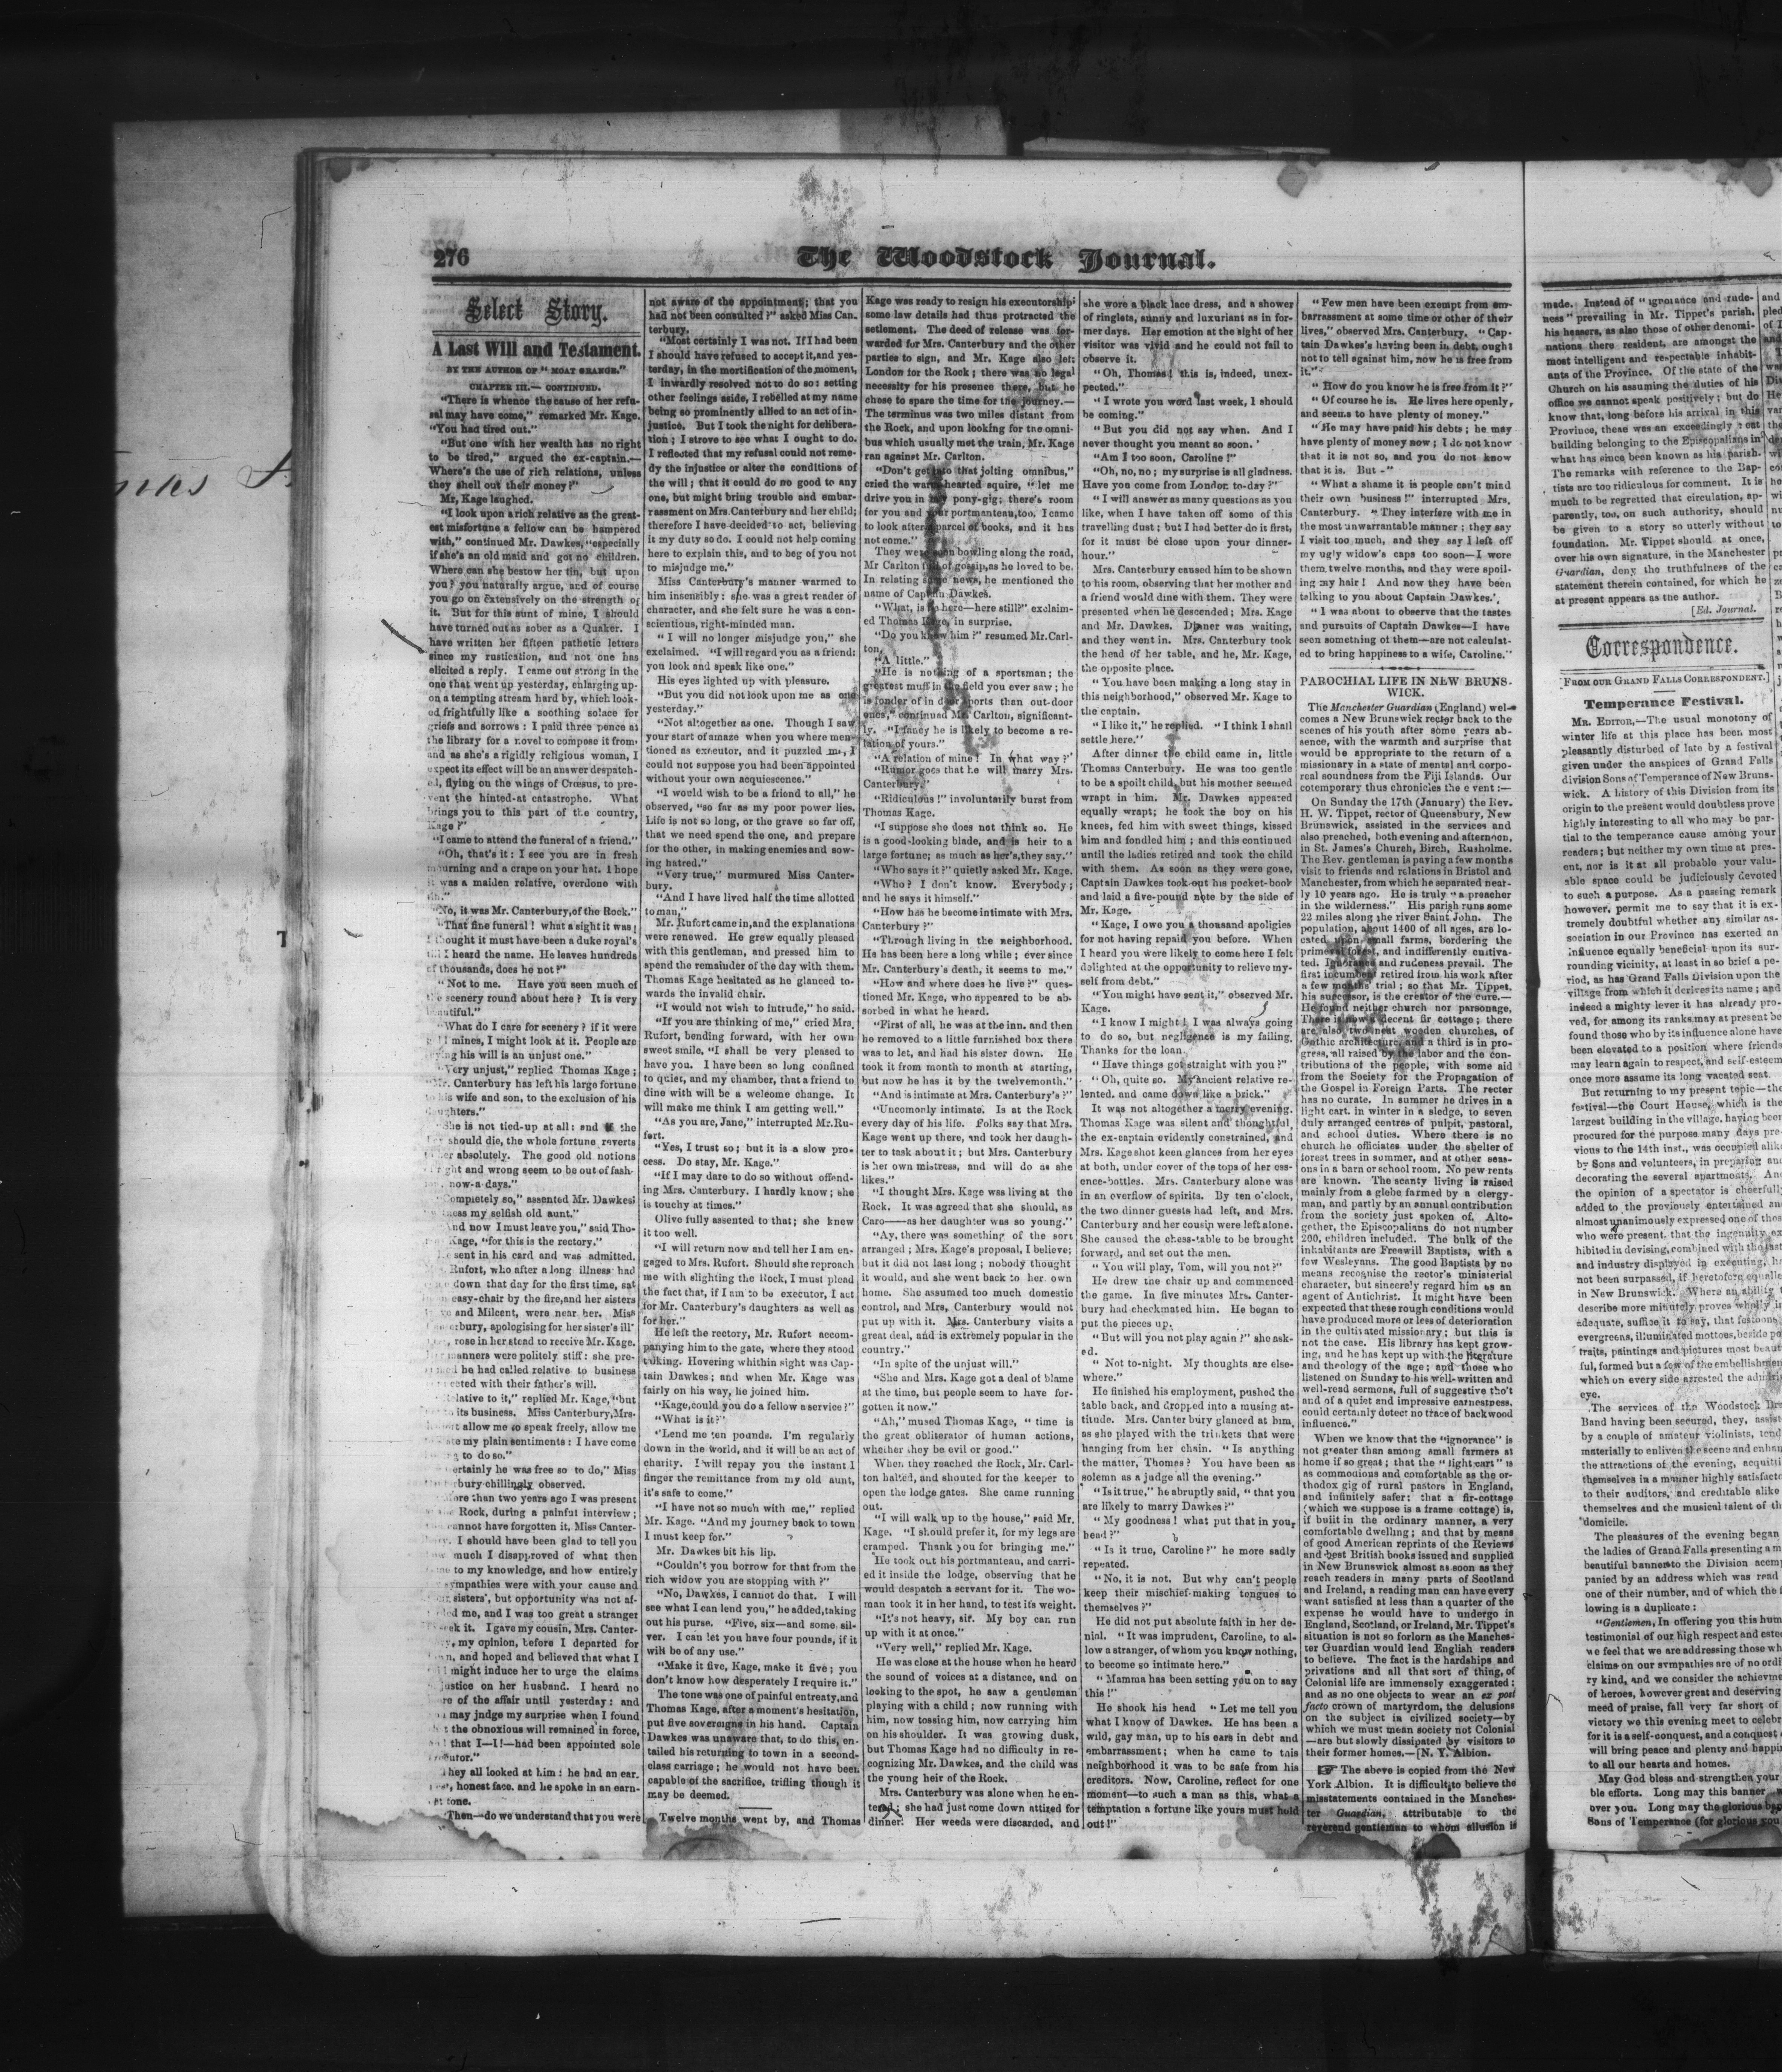 276
The Woodstock Journal.
Select Story.
A Last Will and Testament.
BY THE AUTHOR OF "MOAT GRANGE."
CHAPTER III.— CONTINUED.
"There is whence the cause of her refu-
sal may have come," remarked Mr. Kage.
"You had tired out."
"But one with her wealth has no right
to be tired," argued the ex-captain.—
Where's the use of rich relations, unless
they shell out their money?"
Mr. Kage laughed.
"I look upon a rich relative as the great-
est misfortune a fellow can be hampered
with," continued Mr. Dawkes, "especially
if she's an old maid and got no children.
Where can she bestow her tin, but upon
you? you naturally argue, and of course
you go on extensively on the strength of
it. But for this aunt of mine, I should
have turned out as sober as a Quaker. I
have written her fifteen pathetic letters
since my rustication, and not one has
elicited a reply. I came out strong in the
one that went up yesterday, enlarging up-
on a tempting stream hard by, which look-
ed frightfully like a soothing solace for
griefs and sorrows: I paid three pence at
the library for a novel to compose it from;
and as she's a rigidly religious woman, I
expect its effect will be an answer despatch-
ed, flying on the wings of Crœsus, to pre-
vent the hinted-at catastrophe. What
brings you to this part of the country,
Kage?"
"I came to attend the funeral of a friend."
"Oh, that's it: I see you are in fresh
mourning and a crape on your hat. I hope
it was a maiden relative, overdone with
tin."
"No, it was Mr. Canterbury, of the Rock."
"That fine funeral! what a sight it was!
I thought it must have been a duke royal's
till I heard the name. He leaves hundreds
of thousands, does he not?"
"Not to me. Have you seen much of
the scenery round about here? It is very
beautiful."
"What do I care for scenery? if it were
mines, I might look at it. People are
saying his will is an unjust one."
"Very unjust," replied Thomas Kage;
"Mr. Canterbury has left his large fortune
to his wife and son, to the exclusion of his
daughters."
"She is not tied-up at all: and if the
should die, the whole fortune reverts
her absolutely. The good old notions
right and wrong seem to be out of fash-
now-a-days."
"Completely so," assented Mr. Dawkes;
my selfish old aunt."
"And now I must leave you," said Tho-
Kage, "for this is the rectory."
He sent in his card and was admitted.
Rufort, who after a long illness had
down that day for the first time, sat
easy-chair by the fire, and her sisters
and Milcent, were near her. Miss
Canterbury, apologising for her sister's ill-
rose in her stead to receive Mr. Kage.
manners were politely stiff: she pre-
he had called relative to business
with their father's will.
"Relative to it," replied Mr. Kage, "but
its business. Miss Canterbury, Mrs.
allow me to speak freely, allow me
my plain sentiments: I have come
to do so."
Certainly he was free so to do," Miss
Canterbury chillingly observed.
"More than two years ago I was present
Rock, during a painful interview;
cannot have forgotten it, Miss Canter-
I should have been glad to tell you
much I disapproved of what then
to my knowledge, and how entirely
sympathies were with your cause and
sisters', but opportunity was not af-
me, and I was too great a stranger
it. I gave my cousin, Mrs. Canter-
my opinion, before I departed for
and hoped and believed that what I
might induce her to urge the claims
justice on her husband. I heard no
of the affair until yesterday: and
may judge my surprise when I found
the obnoxious will remained in force,
that I—I!—had been appointed sole
executor."
They all looked at him: he had an ear-
nest, honest face, and he spoke in an earn-
est tone.
"Then—do we understand that you were
not aware of the appointment; that you
had not been consulted?" asked Miss Can-
terbury.
"Most certainly I was not. If I had been
I should have refused to accept it, and yes-
terday, in the mortification of the moment,
I inwardly resolved not to do so: setting
other feelings aside, I rebelled at my name
being so prominently allied to an act of in-
justice. But I took the night for delibera-
tion; I strove to see what I ought to do.
I reflected that my refusal could not reme-
dy the injustice or alter the conditions of
the will; that it could do no good to any
one, but might bring trouble and embar-
rassment on Mrs. Canterbury and her child;
therefore I have decided to act, believing
it my duty so do. I could not help coming
here to explain this, and to beg of you not
to misjudge me."
Miss Canterbury's manner warmed to
him insensibly: she was a great reader of
character, and she felt sure he was a con-
scientious, right-minded man.
"I will no longer misjudge you," she
exclaimed. "I will regard you as a friend:
you look and speak like one."
His eyes lighted up with pleasure.
"But you did not look upon me as one
yesterday."
"Not altogether as one. Though I saw
your start of amaze when you where men-
tioned as executor, and it puzzled me, I
could not suppose you had been appointed
without your own acquiescence."
"I would wish to be a friend to all," he
observed, "so far as my poor power lies.
Life is not so long, or the grave so far off,
that we need spend the one, and prepare
for the other, in making enemies and sow-
ing hatred."
"Very true," murmured Miss Canter-
bury.
"And I have lived half the time allotted
to man,"
Mr. Rufort came in, and the explanations
were renewed. He grew equally pleased
with this gentleman, and pressed him to
spend the remainder of the day with them.
Thomas Kage hesitated as he glanced to-
wards the invalid chair.
"I would not wish to intrude," he said.
"If you are thinking of me," cried Mrs.
Rufort, bending forward, with her own
sweet smile, "I shall be very pleased to
have you. I have been so long confined
to quiet, and my chamber, that a friend to
dine with will be a welcome change. It
will make me think I am getting well."
"As you are, Jane," interrupted Mr. Ru-
fort.
"Yes, I trust so; but it is a slow pro-
cess. Do stay, Mr. Kage."
"If I may dare to do so without offend-
ing Mrs. Canterbury. I hardly know; she
is touchy at times."
Olive fully assented to that; she knew
it too well.
"I will return now and tell her I am en-
gaged to Mrs. Rufort. Should she reproach
me with slighting the Rock, I must plead
the fact that, if I am to be executor, I act
for Mr. Canterbury's daughters as well as
for her."
He left the rectory, Mr. Rufort accom-
panying him to the gate, where they stood
talking. Hovering whithin sight was Cap-
tain Dawkes; and when Mr. Kage was
fairly on his way, he joined him.
"Kage, could you do a fellow a service?"
"What is it?"
"Lend me ten pounds. I'm regularly
down in the world, and it will be an act of
charity. I will repay you the instant I
finger the remittance from my old aunt,
it's safe to come."
"I have not so much with me," replied
Mr. Kage. "And my journey back to town
I must keep for."
Mr. Dawkes bit his lip.
"Couldn't you borrow for that from the
rich widow you are stopping with?"
"No, Dawkes, I cannot do that. I will
see what I can lend you," he added, taking
out his purse. "Five, six—and some sil-
ver. I can let you have four pounds, if it
will be of any use."
"Make it five, Kage, make it five; you
don't know how desperately I require it."
The tone was one of painful entreaty, and
Thomas Kage, after a moment's hesitation,
put five sovereigns in his hand. Captain
Dawkes was unaware that, to do this, en-
tailed his returning to town in a second-
class carriage; he would not have been
capable of the sacrifice, trifling though it
may be deemed.
Twelve months went by, and Thomas
Kage was ready to resign his executorship;
some law details had thus protracted the
setlement. The deed of release was for-
warded for Mrs. Canterbury and the other
parties to sign, and Mr. Kage also left
London for the Rock; there was no legal
necessity for his presence there, but he
chose to spare the time for the journey.—
The terminus was two miles distant from
the Rock, and upon looking for the omni-
bus which usually met the train, Mr. Kage
ran against Mr. Carlton.
"Don't get into that jolting omnibus,"
cried the warm hearted squire, "let me
drive you in my pony-gig; there's room
for you and your portmanteau, too. I came
to look after a parcel of books, and it has
not come."
They were soon bowling along the road,
Mr Carlton full of gossip, as he loved to be.
In relating some news, he mentioned the
name of Captain Dawkes.
"What, is he here—here still?" exclaim-
ed Thomas Kage, in surprise.
"Do you know him?" resumed Mr. Carl-
ton,
"A little."
"He is nothing of a sportsman; the
greatest muff in the field you ever saw; he
is fonder of in door sports than out-door
ones," continued Mr. Carlton, significant-
ly. "I fancy he is likely to become a re-
lation of yours."
"A relation of mine! In what way?"
"Rumor goes that he will marry Mrs.
Canterbury."
"Ridiculous!" involuntarily burst from
Thomas Kage.
"I suppose she does not think so. He
is a good-looking blade, and is heir to a
large fortune; as much as her's, they say."
"Who says it?" quietly asked Mr. Kage.
"Who? I don't know. Everybody;
and he says it himself."
"How has he become intimate with Mrs.
Canterbury?"
"Through living in the neighborhood.
He has been here a long while; ever since
Mr. Canterbury's death, it seems to me."
"How and where does he live?" ques-
tioned Mr. Kage, who appeared to be ab-
sorbed in what he heard.
"First of all, he was at the inn. and then
he removed to a little furnished box there
was to let, and had his sister down. He
took it from month to month at starting,
but now he has it by the twelvemonth."
"And is intimate at Mrs. Canterbury's?"
"Uncomonly intimate. Is at the Rock
every day of his life. Folks say that Mrs.
Kage went up there, and took her daugh-
ter to task about it; but Mrs. Canterbury
is her own mistress, and will do as she
likes."
"I thought Mrs. Kage was living at the
Rock. It was agreed that she should, as
Caro——as her daughter was so young."
"Ay, there was something of the sort
arranged; Mrs. Kage's proposal, I believe;
but it did not last long; nobody thought
it would, and she went back to her own
home. She assumed too much domestic
control, and Mrs. Canterbury would not
put up with it. Mrs. Canterbury visits a
great deal, and is extremely popular in the
country."
"In spite of the unjust will."
"She and Mrs. Kage got a deal of blame
at the time, but people seem to have for-
gotten it now."
"Ah," mused Thomas Kage, "time is
the great obliterator of human actions,
whether they be evil or good."
When they reached the Rock, Mr. Carl-
ton halted, and shouted for the keeper to
open the lodge gates. She came running
out.
"I will walk up to the house," said Mr.
Kage. "I should prefer it, for my legs are
cramped. Thank you for bringing me."
He took out his portmanteau, and carri-
ed it inside the lodge, observing that he
would despatch a servant for it. The wo-
man took it in her hand, to test its weight.
"It's not heavy, sir. My boy can run
up with it at once."
"Very well," replied Mr. Kage.
He was close at the house when he heard
the sound of voices at a distance, and on
looking to the spot, he saw a gentleman
playing with a child; now running with
him, now tossing him, now carrying him
on his shoulder. It was growing dusk,
but Thomas Kage had no difficulty in re-
cognizing Mr. Dawkes, and the child was
the young heir of the Rock.
Mrs. Canterbury was alone when he en-
tered; she had just come down attired for
dinner. Her weeds were discarded, and
she wore a black lace dress, and a shower
of ringlets, sunny and luxuriant as in for-
mer days. Her emotion at the sight of her
visitor was vivid and he could not fail to
observe it.
"Oh, Thomas! this is, indeed, unex-
pected."
"I wrote you word last week, I should
be coming."
"But you did not say when. And I
never thought you meant so soon.'
"Am I too soon, Caroline!"
"Oh, no, no; my surprise is all gladness.
Have you come from London to-day?"
"I will answer as many questions as you
like, when I have taken off some of this
travelling dust; but I had better do it first,
for it must be close upon your dinner-
hour."
Mrs. Canterbury caused him to be shown
to his room, observing that her mother and
a friend would dine with them. They were
presented when he descended; Mrs. Kage
and Mr. Dawkes. Dinner was waiting,
and they went in. Mrs. Canterbury took
the head of her table, and he, Mr. Kage,
the opposite place.
"You have been making a long stay in
this neighborhood," observed Mr. Kage to
the captain.
"I like it," he replied. "I think I shall
settle here."
After dinner the child came in, little
Thomas Canterbury. He was too gentle
to be a spoilt child, but his mother seemed
wrapt in him. Mr. Dawkes appeared
equally wrapt; he took the boy on his
knees, fed him with sweet things, kissed
him and fondled him; and this continued
until the ladies retired and took the child
with them. As soon as they were gone,
Captain Dawkes took out his pocket-book
and laid a five-pound note by the side of
Mr. Kage.
"Kage, I owe you a thousand apoligies
for not having repaid you before. When
I heard you were likely to come here I felt
delighted at the opportunity to relieve my-
self from debt."
"You might have sent it," observed Mr.
Kage.
"I know I might! I was always going
to do so, but negligence is my failing.
Thanks for the loan.
"Have things got straight with you?"
"Oh, quite so. My ancient relative re-
lented. and came down like a brick."
It was not altogether a merry evening.
Thomas Kage was silent and thoughtful,
the ex-captain evidently constrained, and
Mrs. Kage shot keen glances from her eyes
at both, under cover of the tops of her ess-
ence-bottles. Mrs. Canterbury alone was
in an overflow of spirits. By ten o'clock,
the two dinner guests had left, and Mrs.
Canterbury and her cousin were left alone.
She caused the chess-table to be brought
forward, and set out the men.
"You will play, Tom, will you not?"
He drew the chair up and commenced
the game. In five minutes Mrs. Canter-
bury had checkmated him. He began to
put the pieces up.
"But will you not play again?" she ask-
ed.
"Not to-night. My thoughts are else-
where."
He finished his employment, pushed the
table back, and dropped into a musing at-
titude. Mrs. Canterbury glanced at him,
as she played with the trinkets that were
hanging from her chain. "Is anything
the matter, Thomas? You have been as
solemn as a judge all the evening."
"Is it true," he abruptly said, "that you
are likely to marry Dawkes?"
"My goodness! what put that in your
head?"
"Is it true, Caroline?" he more sadly
repeated.
"No, it is not. But why can't people
keep their mischief-making tongues to
themselves?"
He did not put absolute faith in her de-
nial. "It was imprudent, Caroline, to al-
low a stranger, of whom you know nothing,
to become so intimate here."
"Mamma has been setting you on to say
this!"
He shook his head "Let me tell you
what I know of Dawkes. He has been a
wild, gay man, up to his ears in debt and
embarrassment; when he came to this
neighborhood it was to be safe from his
creditors. Now, Caroline, reflect for one
moment—to such a man as this, what a
temptation a fortune like yours must hold
out!"
"Few men have been exempt from em-
barrassment at some time or other of their
lives," observed Mrs. Canterbury. "Cap-
tain Dawkes's having been in debt, ought
not to tell against him, now he is free from
it."
"How do you know he is free from it?"
"Of course he is. He lives here openly,
and seems to have plenty of money."
"He may have paid his debts; he may
have plenty of money now; I do not know
that it is not so, and you do not know
that it is. But -"
"What a shame it is people can't mind
their own business!" interrupted Mrs.
Canterbury. "They interfere with me in
the most unwarrantable manner; they say
I visit too much, and they say I left off
my ugly widow's caps too soon—I wore
them twelve months, and they were spoil-
ing my hair! And now they have been
talking to you about Captain Dawkes.',
"I was about to observe that the tastes
and pursuits of Captain Dawkes—I have
seen something ot them—are not calculat-
ed to bring happiness to a wife, Caroline."
PAROCHIAL LIFE IN NEW BRUNS-
WICK.
The Manchester Guardian (England) wel-
comes a New Brunswick rector back to the
scenes of his youth after some years ab-
sence, with the warmth and surprise that
would be appropriate to the return of a
missionary in a state of mental and corpo-
real soundness from the Fiji Islands. Our
cotemporary thus chronicles the event:—
On Sunday the 17th (January) the Rev.
H. W. Tippet, rector of Queensbury, New
Brunswick, assisted in the services and
also preached, both evening and afternoon,
in St. James's Church, Birch, Rusholme.
The Rev. gentleman is paying a few months
visit to friends and relations in Bristol and
Manchester, from which he separated near-
ly 10 years ago. He is truly "a preacher
in the wilderness." His parish runs some
22 miles along the river Saint John. The
population, about 1400 of all ages, are lo-
cated upon small farms, bordering the
primeval forest, and indifferently cultiva-
ted. Ignorance and rudeness prevail. The
first incumbent retired from his work after
a few months' trial; so that Mr. Tippet,
his successor, is the creator of the cure.—
He found neither church nor parsonage,
There is now a decent fir cottage; there
are also two neat wooden churches, of
Gothic architecture, and a third is in pro-
gress, all raised by the labor and the con-
tributions of the people, with some aid
from the Society for the Propagation of
the Gospel in Foreign Parts. The rector
has no curate. In summer he drives in a
light cart. in winter in a sledge, to seven
duly arranged centres of pulpit, pastoral,
and school duties. Where there is no
church he officiates under the shelter of
forest trees in summer, and at other seas-
ons in a barn or school room. No pew rents
are known. The scanty living is raised
mainly from a glebe farmed by a clergy-
man, and partly by an annual contribution
from the society just spoken of. Alto-
gether, the Episcopalians do not number
200, children included. The bulk of the
inhabitants are Freewill Baptists, with a
few Wesleyans. The good Baptists by no
means recognise the rector's ministerial
character, but sincerely regard him as an
agent of Antichrist. It might have been
expected that these rough conditions would
have produced more or less of deterioration
in the cultivated missionary; but this is
not the case. His library has kept grow-
ing, and he has kept up with the literature
and theology of the age; and those who
listened on Sunday to his well-written and
well-read sermons, full of suggestive tho't
and of a quiet and impressive earnestness,
could certainly detect no trace of backwood
influence."
When we know that the "ignorance" is
not greater than among small farmers at
home if so great; that the "light cart" is
as commodious and comfortable as the or-
thodox gig of rural pastors in England,
and infinitely safer: that a fir-cottage
(which we suppose is a frame cottage) is,
if built in the ordinary manner, a very
comfortable dwelling; and that by means
of good American reprints of the Reviews
and best British books issued and supplied
in New Brunswick almost as soon as they
reach readers in many parts of Scotland
and Ireland, a reading man can have every
want satisfied at less than a quarter of the
expense he would have to undergo in
England, Scotland, or Ireland, Mr. Tippet's
situation is not so forlorn as the Manches-
ter Guardian would lead English readers
to believe. The fact is the hardships and
privations and all that sort of thing, of
Colonial life are immensely exaggerated;
and as no one objects to wear an ex post
facto crown of martyrdom, the delusions
on the subject in civilized society—by
which we must mean society not Colonial
—are but slowly dissipated by visitors to
their former homes.—[N. Y. Albion.
☞ The above is copied from the New
York Albion. It is difficult to believe the
misstatements contained in the Manches-
ter Guardian, attributable to the
reverend gentleman to whom allusion is
made. Instead of "ignorance and rude-
ness" prevailing in Mr. Tippet's parish.
his hearers, as also those of other denomi-
nations there resident, are amongst the
most intelligent and respectable inhabit-
ants of the Province. Of the state of the
Church on his assuming the duties of his
office we cannot speak positively; but do
know that, long before his arrival in this
Province, there was an exceedingly neat
building belonging to the Episcopalians in
what has since been known as his parish.
The remarks with reference to the Bap-
tists are too ridiculous for comment. It is
much to be regretted that circulation, ap-
parently, too, on such authority, should
be given to a story so utterly without
foundation. Mr. Tippet should at once,
over his own signature, in the Manchester
Guardian, deny the truthfulness of the
statement therein contained, for which he
at present appears as the author.
[Ed. Journal.
Correspondence.
[FROM OUR GRAND FALLS CORRESPONDENT.]
Temperance Festival.
MR. EDITOR,—The usual monotony of
winter life at this place has been most
pleasantly disturbed of late by a festival
given under the auspices of Grand Falls
division Sons of Temperance of New Bruns-
wick. A history of this Division from its
origin to the present would doubtless prove
highly interesting to all who may be par-
tial to the temperance cause among your
readers; but neither my own time at pres-
ent, nor is it at all probable your valu-
able space could be judiciously devoted
to such a purpose. As a passing remark
however, permit me to say that it is ex-
tremely doubtful whether any similar as-
sociation in our Province has exerted an
influence equally beneficial upon its sur-
rounding vicinity, at least in so brief a pe-
riod, as has Grand Falls Division upon the
village from which it derives its name; and
indeed a mighty lever it has already pro-
ved, for among its ranks may at present be
found those who by its influence alone have
been elevated to a position where friends
may learn again to respect, and self-esteem
once more assume its long vacated seat.
But returning to my present topic—the
festival—the Court House, which is the
largest building in the village, having been
procured for the purpose many days pre-
vious to the 14th inst., was occupied alike
by Sons and volunteers, in preparing and
decorating the several apartments. And
the opinion of a spectator is cheerfully
added to the previously entertained and
almost unanimously expressed one of those
who were present. that the ingenuity ex-
hibited in devising, combined with the
and industry displayed in executing,
not been surpassed, if heretofore
in New Brunswick. Where an ability
describe more minutely proves wholly
adequate, suffice it to say, that festoons
evergreens, illuminated mottoes, beside
traits, paintings and pictures most
ful, formed but a few of the embellishmen
which on every side arrested the
eye.
The services of the Woodstock
Band having been secured, they,
by a couple of amateur violinists,
materially to enliven the scene and
the attractions of the evening,
themselves in a manner highly
to their auditors, and creditable alike
themselves and the musical talent of
domicile.
The pleasures of the evening began
the ladies of Grand Falls presenting a
beautiful banner to the Division
panied by an address which was read
one of their number, and of which the
lowing is a duplicate:
"Gentlemen, In offering you this hum
testimonial of our high respect and
we feel that we are addressing those
claims on our sympathies are of no
ry kind, and we consider the
of heroes, however great and deserving
meed of praise, fall very far short of
victory we this evening meet to
for it is a self-conquest, and a conquest
will bring peace and plenty and
to all our hearts and homes.
May God bless and strengthen your
ble efforts. Long may this banner
over you. Long may the glorious
Sons of Temperance (for glorious you